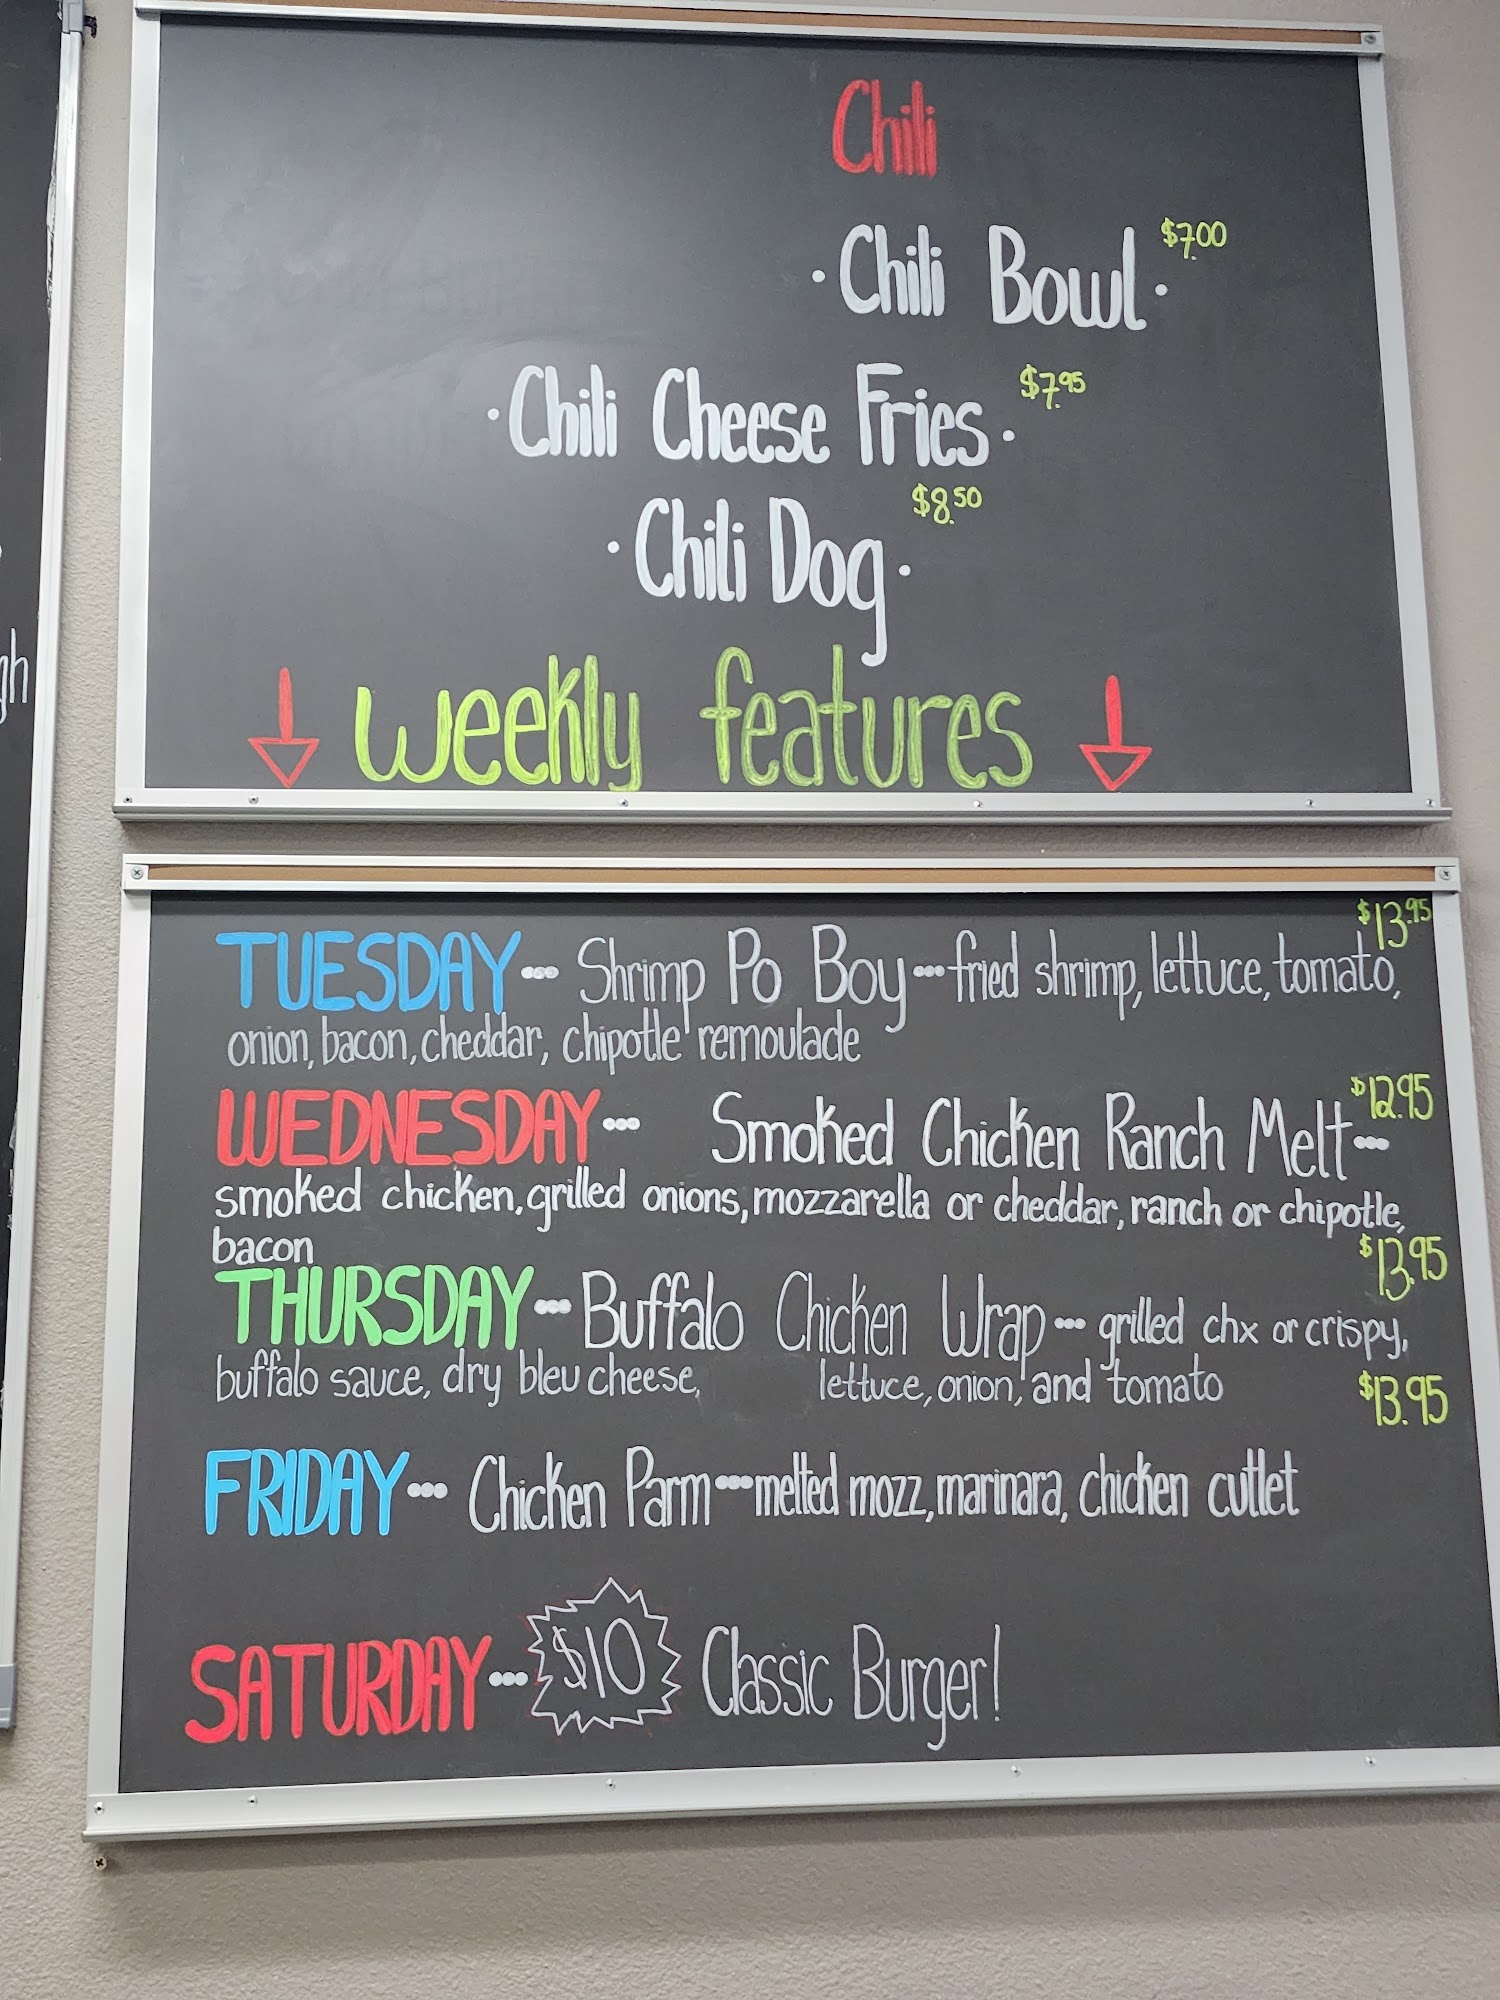 Chili
· Chili Bowl · $7.00
· Chili Cheese Fries · $7.95
· Chili Dog · $8.50
weekly features
gh
TUESDAY ••• Shrimp Po Boy ••• fried shrimp, lettuce, tomato, $13.95
onion, bacon, cheddar, chipotle remoulade
WEDNESDAY ••• Smoked Chicken Ranch Melt ••• $12.95
smoked chicken, grilled onions, mozzarella or cheddar, ranch or chipotle,
bacon
THURSDAY ••• Buffalo Chicken Wrap ••• grilled chx or crispy, $13.95
buffalo sauce, dry bleu cheese, lettuce, onion, and tomato
FRIDAY ••• Chicken Parm ••• melted mozz, marinara, chicken cutlet $13.95
SATURDAY ••• $10 Classic Burger!